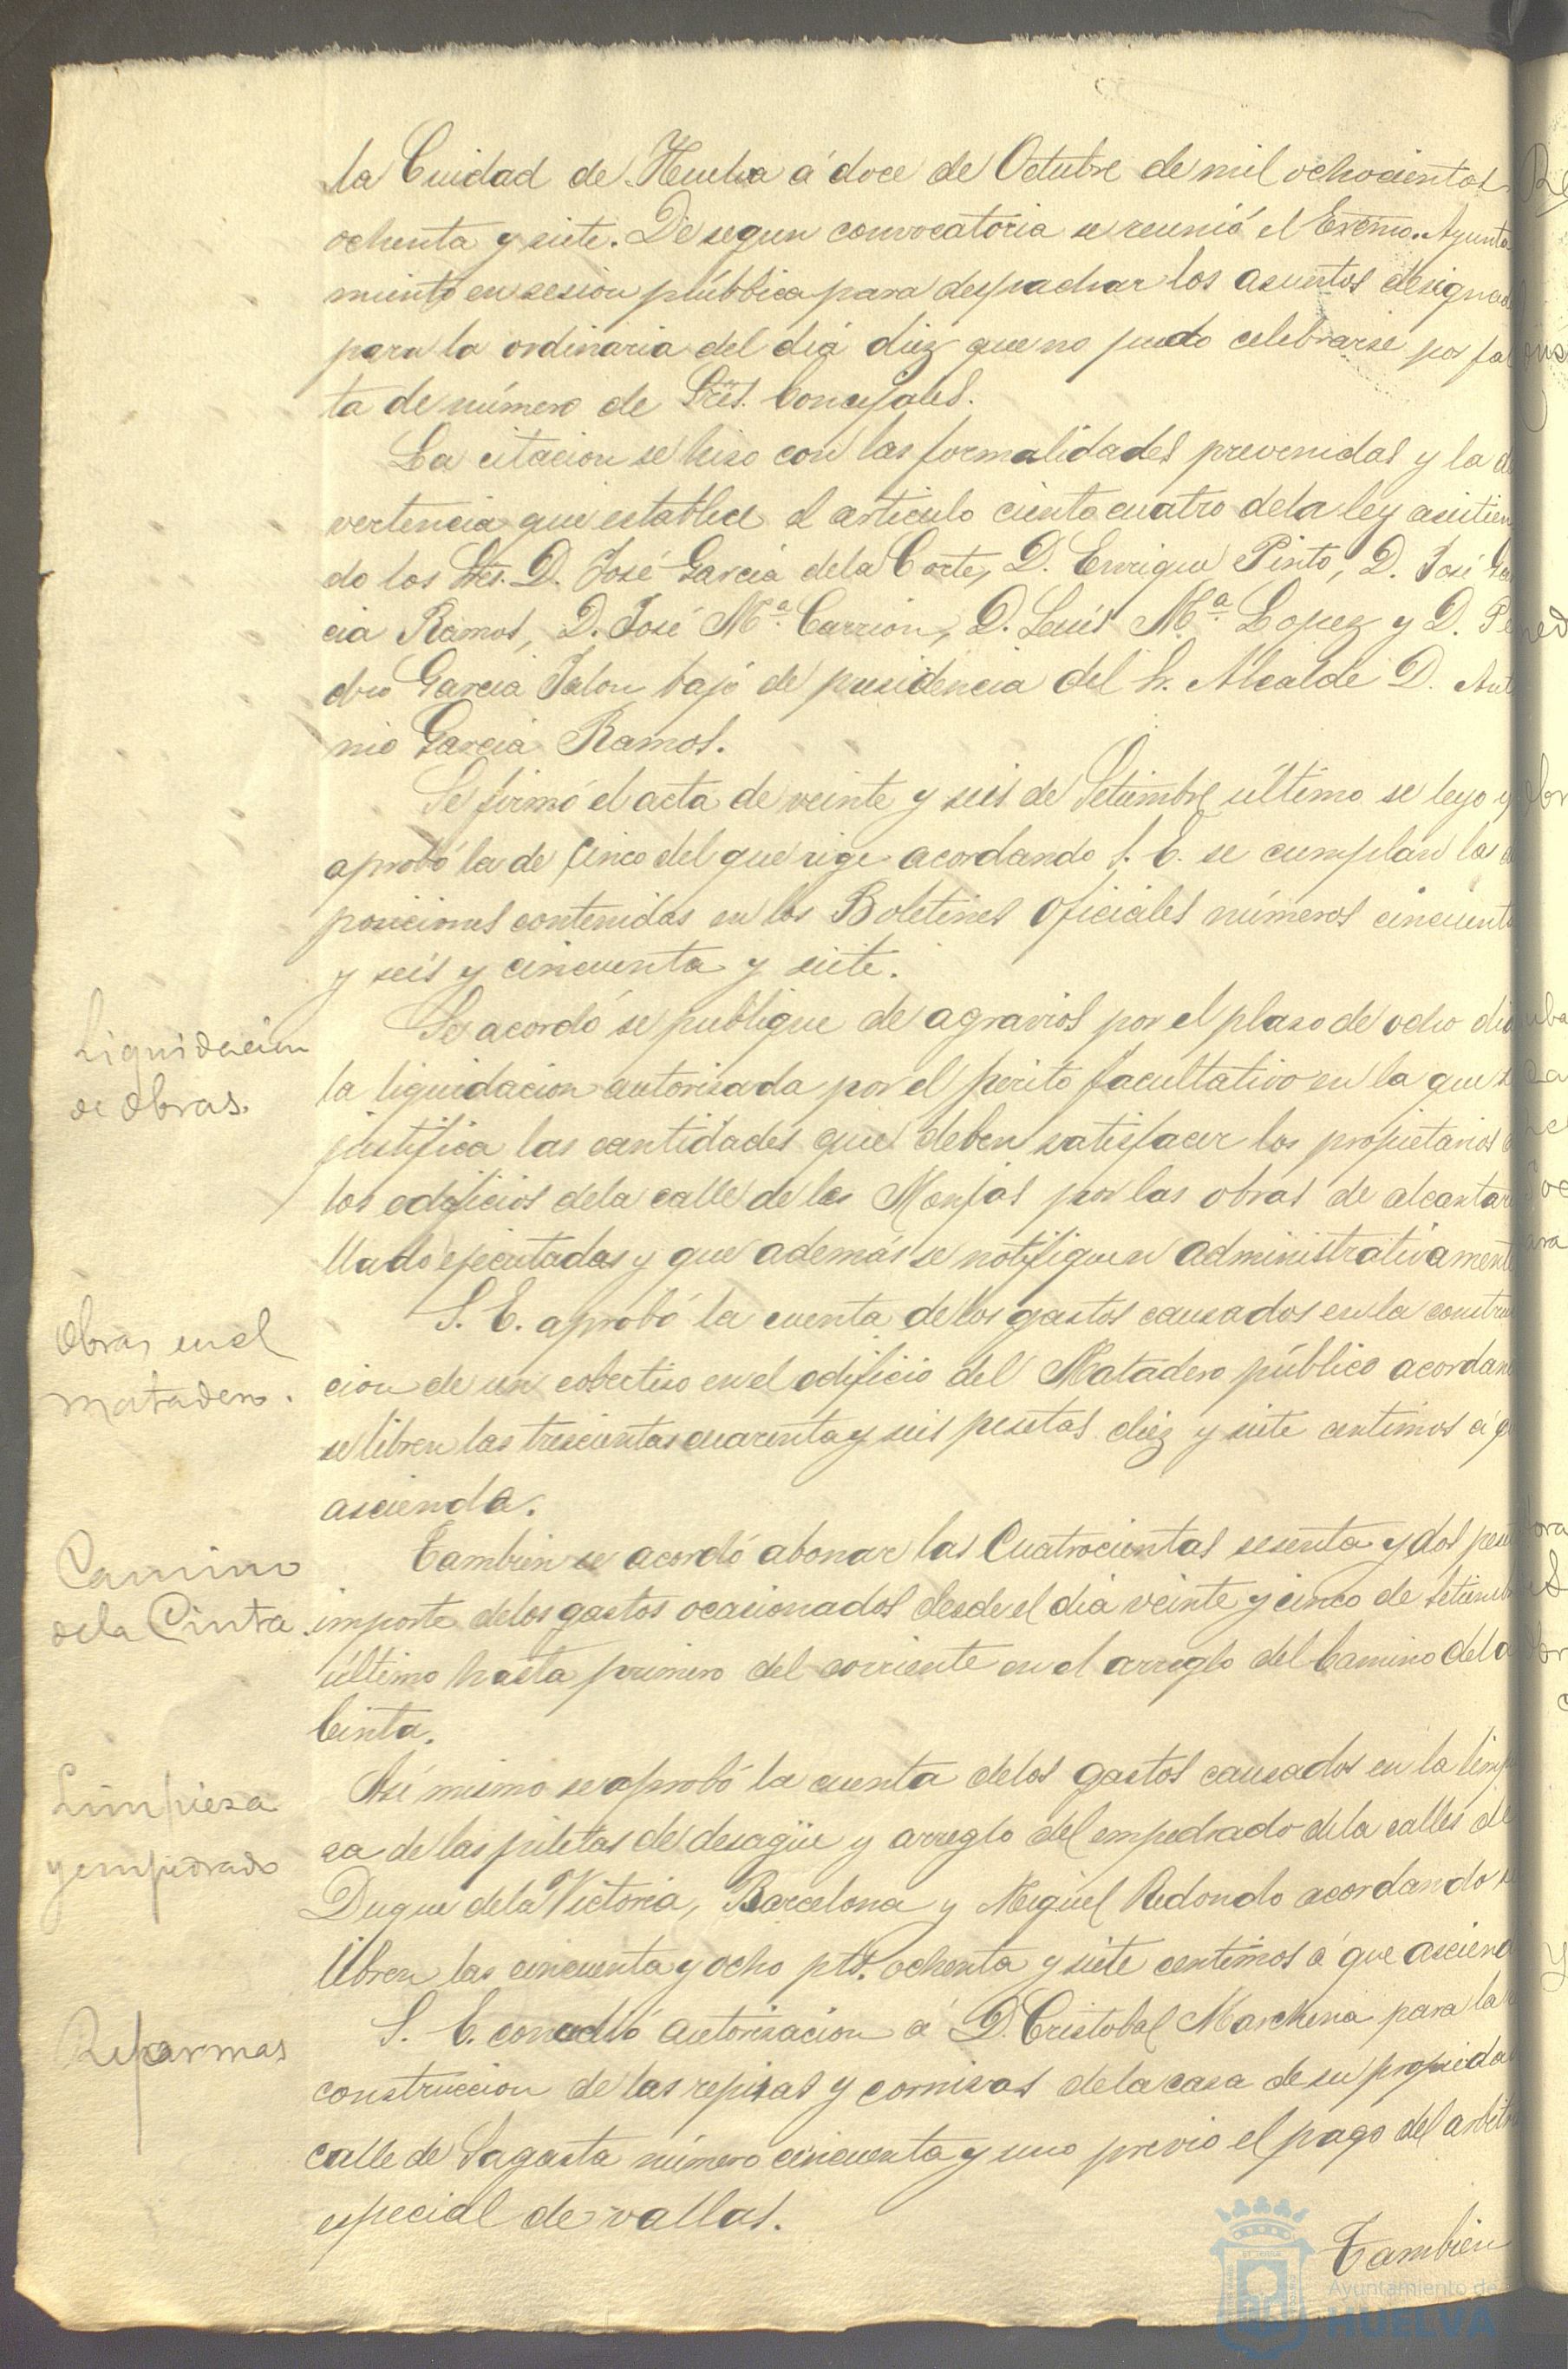 la Cuidad de Huelva á doce de Octubre de mil ochocientos
ochenta y siete. De segun convocatoria se reunió el Excmo. Ayunta
miento en sesion pública para despachar los asuntos designad
para la ordinaria del dia diez que no pudo celebrarse por fal
ta de número de Sres. Concejales.
La citacion se hiso con las formalidades prevenidas y la ad
vertencia que establece el articulo ciento cuatro dela ley asistien
do los Sres. D. José Garcia dela Corte, D. Enrique Pinto, D. José Gar
cia Ramos, D. José Mª. Carrion, D. Luis Mª. Lopez y D. Pe
dro Garcia Jalon bajo de presidencia del Sr. Alcalde D. Anto
nio Garcia Ramos.
Se firmó el acta de veinte y seis de Setiembre último se leyo y
aprobó la de cinco del que rige acordando S. E. se cumplan las
posiciones contenidas en los Boletines Oficiales números cincuenta
y seis y cincuenta y siete.
Liquidacion
de Obras.
Se acordó se publique de agravios por el plaso de ocho dia
la liquidacion autorisada por el perito facultativo en la que s
justifica las cantidades que deben satisfacer los propietarios
los edificios dela calle de las Monjas por las obras de alcantari
llado ejecutadas y que además se notifiquen administrativamente
Obras en el
matadero.
S. E. aprobó la cuenta de los gastos causados en la construc
cion de un cobertiso en el edificio del Matadero público acordand
se libren las trescientas cuarenta y seis pesetas diez y siete centimos á q
ascienda.
Camino
dela Cinta.
Tambien se acordó abonar las Cuatrocientas sesenta y dos pese
importe delos gastos ocasionados desde el dia veinte y cinco de Setiemb
último hasta primero del corriente en el arreglo del Camino dela
Cinta.
Limpiesa
y empedrado
Asi mismo se aprobó la cuenta delos gastos causados en la limp
sa de las piletas de desagüe y arreglo del empedrado dela calles de
Duque dela Victoria, Barcelona y Miguel Redondo acordando se
libren las cincuenta y ocho pts. ochenta y siete centimos á que asciend
Reformas
S. E. concedió autorisacion á D. Cristobal Marchena para la
construccion de las repisas y cornisas dela casa de su propieda
calle de Sagasta número cincuenta y uno previo el pago del arbitri
especial de vallas.
Tambien
Ayuntamiento de
HUELVA